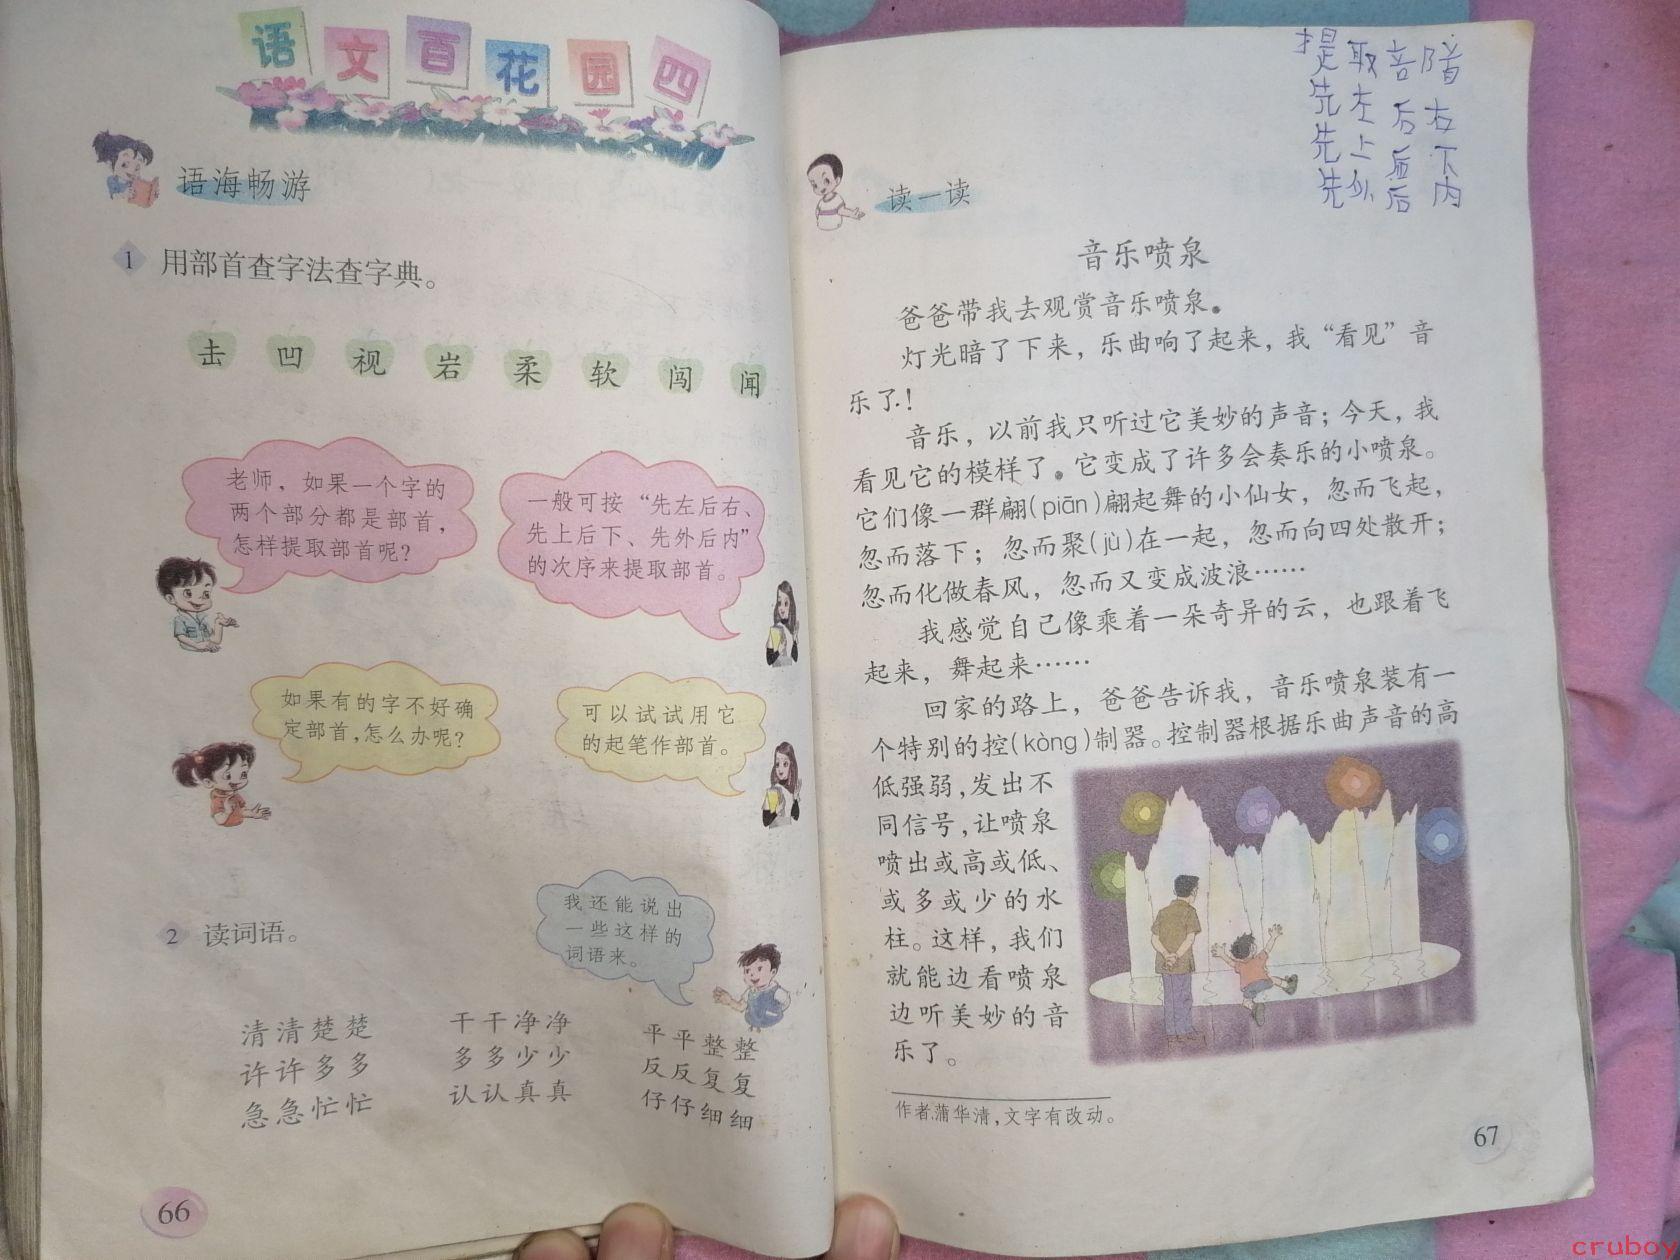 语文百花园四
语海畅游
1 用部首查字法查字典。
击 凹 视 岩 柔 软 闯 闻
老师，如果一个字的
两个部分都是部首，
怎样提取部首呢？
一般可按“先左后右、
先上后下、先外后内”
的次序来提取部首。
如果有的字不好确
定部首，怎么办呢？
可以试试用它
的起笔作部首。
2 读词语。
我还能说出
一些这样的
词语来。
清清楚楚 干干净净 平平整整
许许多多 多多少少 反反复复
急急忙忙 认认真真 仔仔细细
66
提取音陪
先左后右
先上后下
先外后内
读一读
音乐喷泉
爸爸带我去观赏音乐喷泉。
灯光暗了下来，乐曲响了起来，我“看见”音
乐了！
音乐，以前我只听过它美妙的声音；今天，我
看见它的模样了。它变成了许多会奏乐的小喷泉。
它们像一群翩(piān)翩起舞的小仙女，忽而飞起，
忽而落下；忽而聚(jù)在一起，忽而向四处散开；
忽而化做春风，忽而又变成波浪……
我感觉自己像乘着一朵奇异的云，也跟着飞
起来，舞起来……
回家的路上，爸爸告诉我，音乐喷泉装有一
个特别的控(kòng)制器。控制器根据乐曲声音的高
低强弱，发出不
同信号，让喷泉
喷出或高或低、
或多或少的水
柱。这样，我们
就能边看喷泉
边听美妙的音
乐了。
作者蒲华清，文字有改动。
67
cruboy